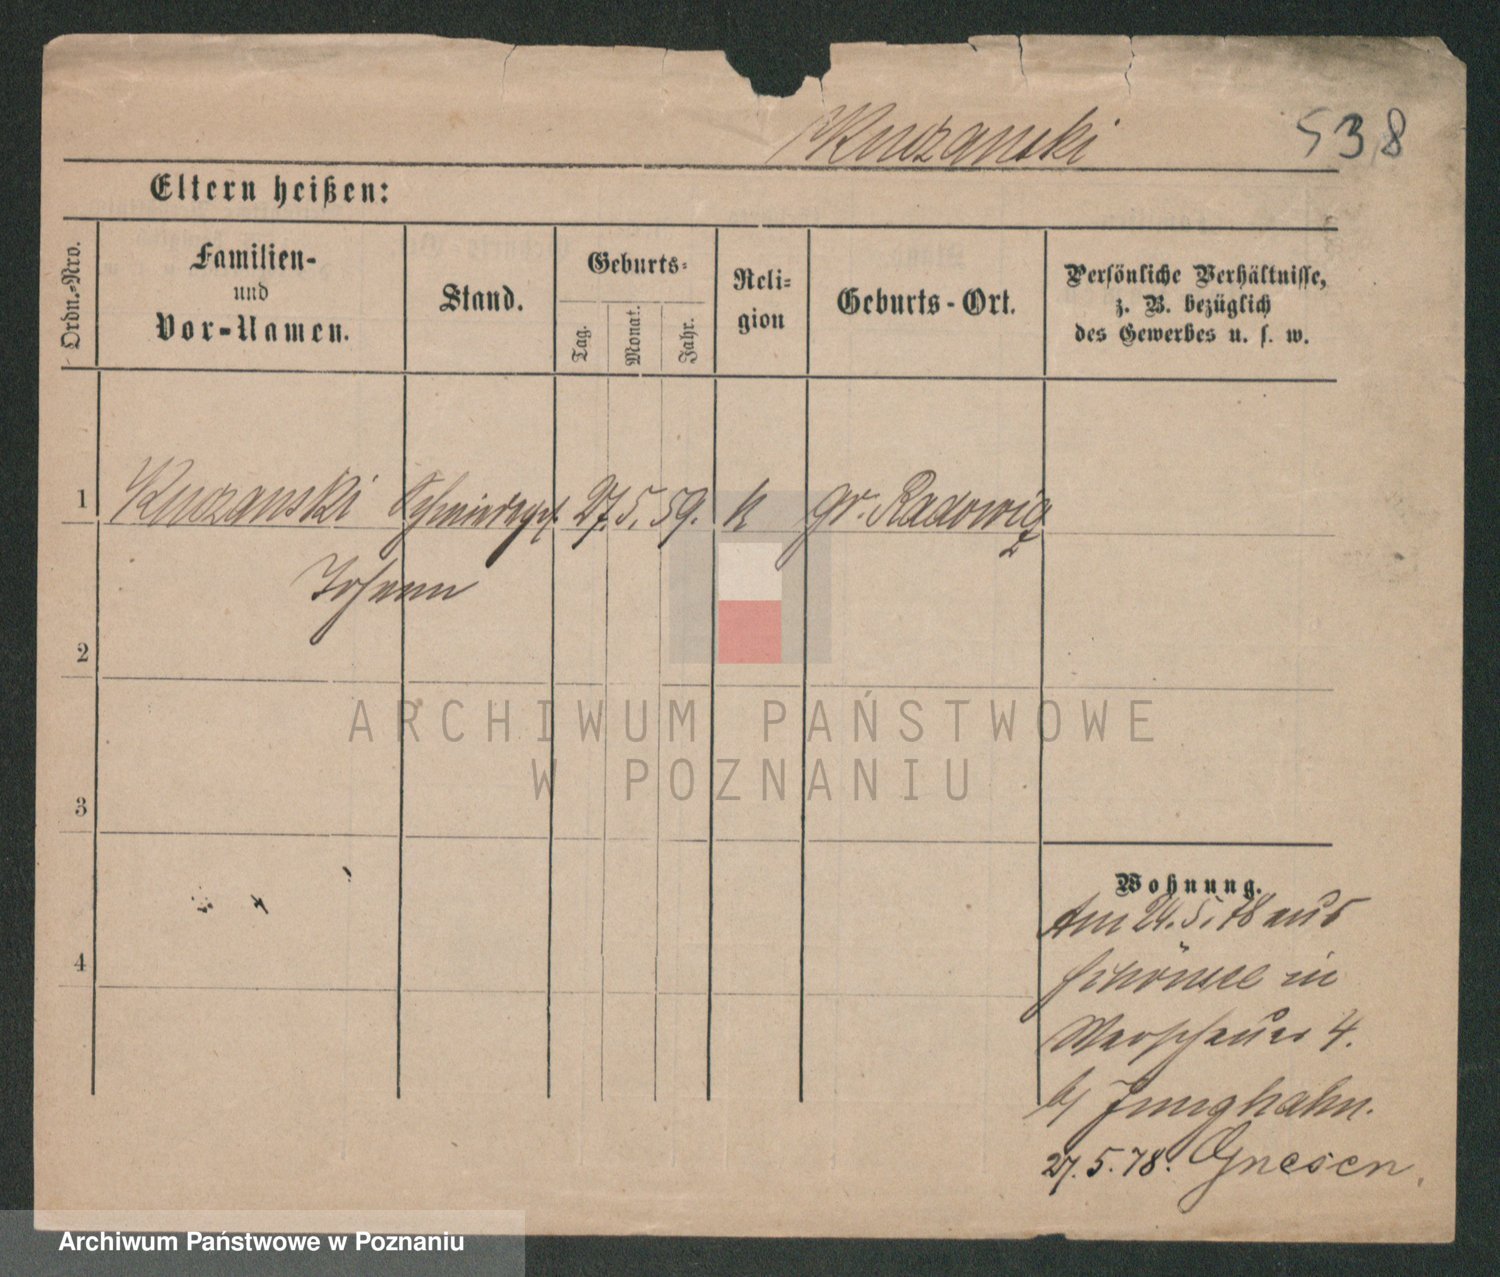 Knozanski
538
Eltern heißen:
Ordn.-Nro.
Familien-
und
Vor-Namen.
Stand.
Geburts-
Tag.
Monat.
Jahr.
Reli-
gion
Geburts-Ort.
Persönliche Verhältnisse,
z. B. bezüglich
des Gewerbes u. s. w.
1
Schmiedeges. 27. 5. 59. k gr. Radowig
Johann
2
3
4
Wohnung.
Am 24. 5. 78 aus
Schönsee in
Warschauer 4.
b/ Junghahn.
27. 5. 78. Gnesen.
ARCHIWUM PAŃSTWOWE
W POZNANIU
Archiwum Państwowe w Poznaniu